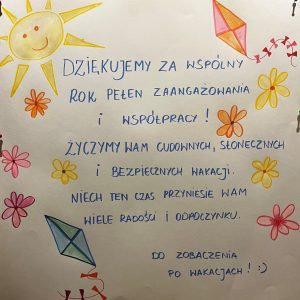 DZIĘKUJEMY ZA WSPÓLNY
ROK PEŁEN ZAANGAŻOWANIA
I WSPÓŁPRACY!
ŻYCZYMY WAM CUDOWNYCH, SŁONECZNYCH
I BEZPIECZNYCH WAKACJI.
NIECH TEN CZAS PRZYNIESIE WAM
WIELE RADOŚCI I ODPOCZYNKU.
DO ZOBACZENIA
PO WAKACJACH! :)